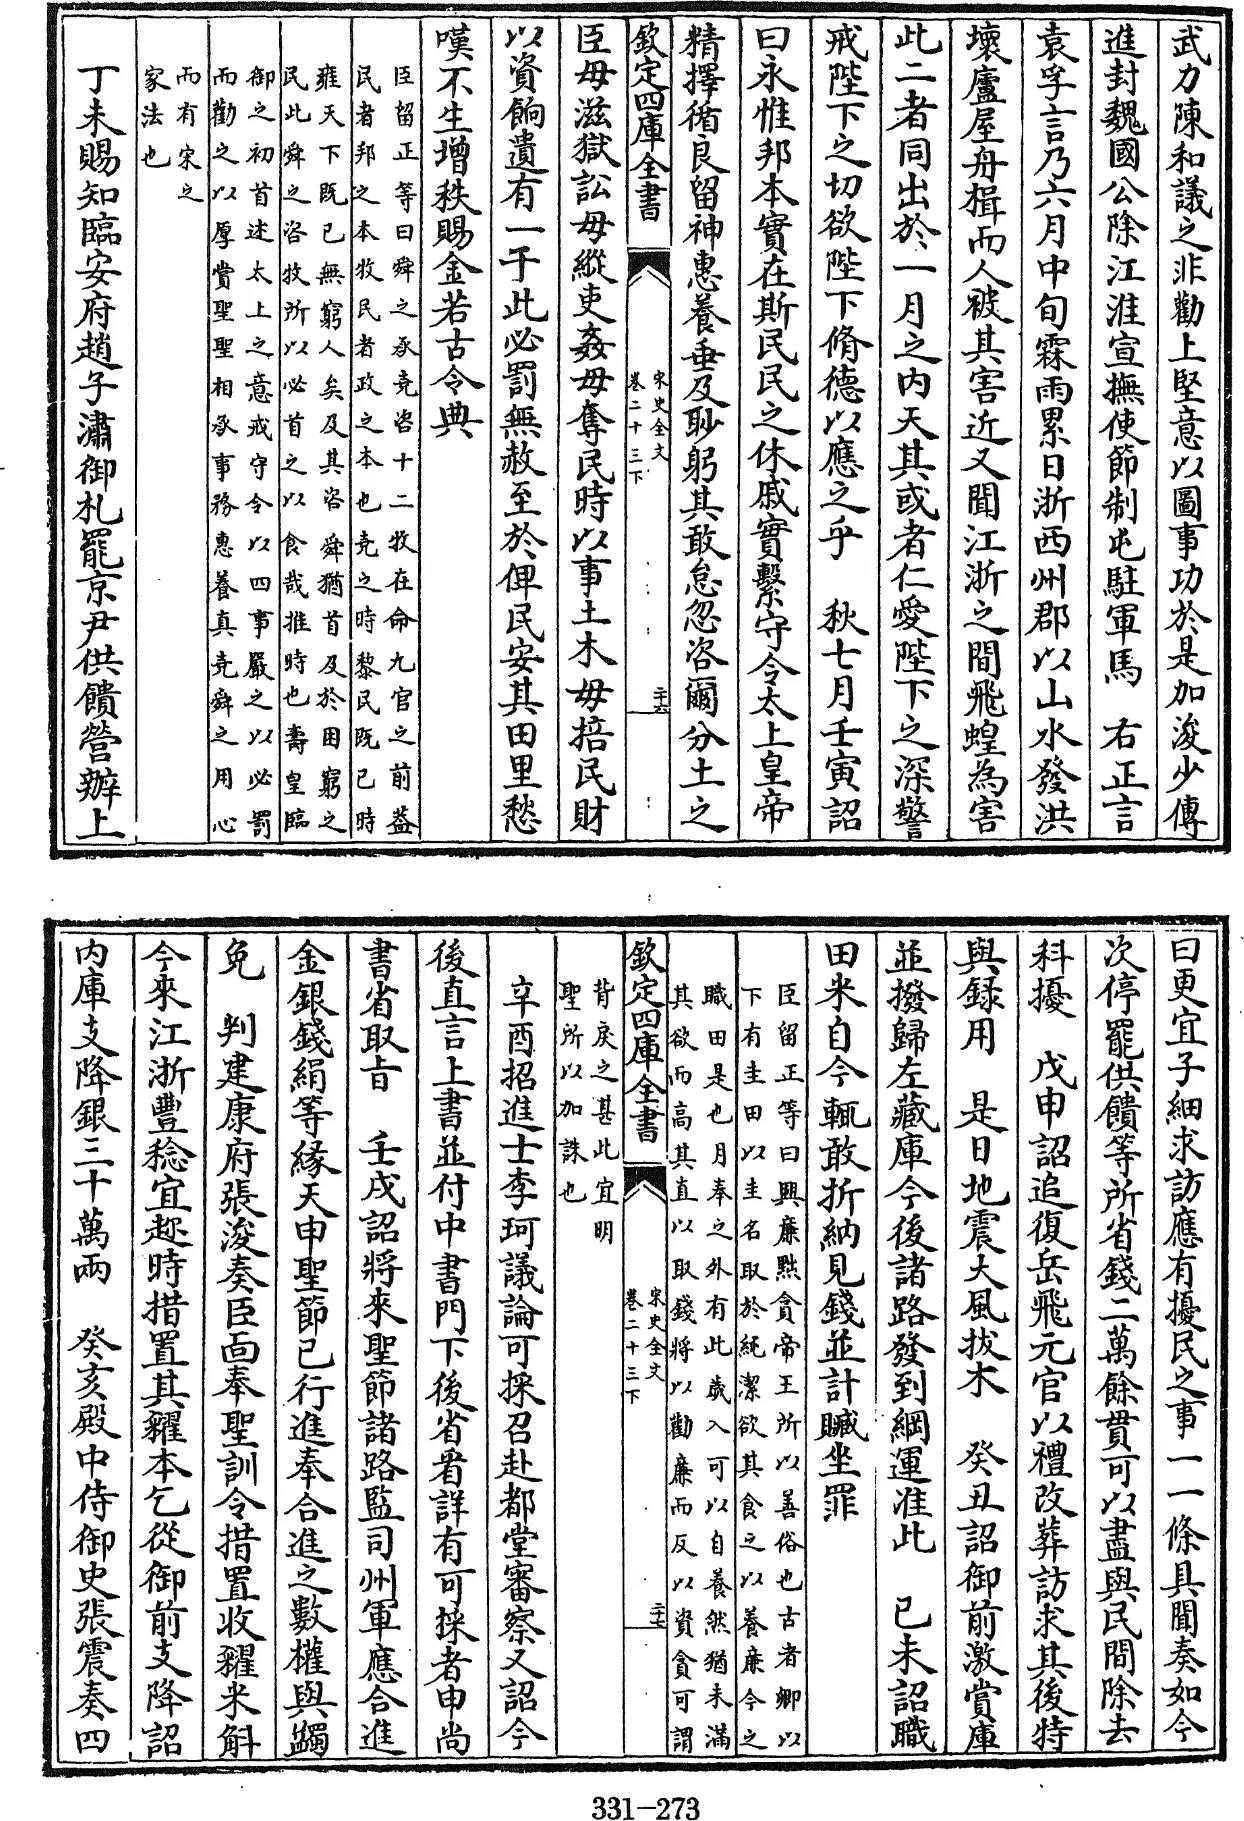 武力陳和議之非勸上堅意以圖事功於是加浚少傅
進封魏國公除江淮宣撫使節制屯駐軍馬　右正言
袁孚言乃六月中旬霖雨累日浙西州郡以山水發洪
壞廬屋舟楫而人被其害近又聞江浙之間飛蝗為害
此二者同出於一月之内天其或者仁愛陛下之深警
戒陛下之切欲陛下脩德以應之乎　秋七月壬寅詔
曰永惟邦本實在斯民民之休戚實繫守令太上皇帝
精擇循良留神惠養垂及眇躬其敢怠忽咨爾分土之
欽定四庫全書
宋史全文
卷二十三下
二十六
臣毋滋獄訟毋縱吏姦毋奪民時以事土木毋掊民財
以資餉遺有一于此必罰無赦至於俾民安其田里愁
嘆不生增秩賜金若古令典
臣留正等曰舜之承堯咨十二牧在命九官之前益
民者邦之本牧民者政之本也堯之時黎民既已時
雍天下既已無窮人矣及其咨舜猶首及於困窮之
民此舜之咨牧所以必首之以食哉推時也壽皇臨
御之初首述太上之意戒守令以四事嚴之以必罰
而勸之以厚賞聖聖相承事務惠養真堯舜之用心
而有宋之
家法也
丁未賜知臨安府趙子潚御札罷京尹供饋營辦上
曰更宜子細求訪應有擾民之事一一條具聞奏如今
次停罷供饋等所省錢二萬餘貫可以盡與民間除去
科擾　戊申詔追復岳飛元官以禮改葬訪求其後特
與録用　是日地震大風拔木　癸丑詔御前激賞庫
並撥歸左藏庫今後諸路發到綱運准此　已未詔職
田米自今輒敢折納見錢並計贓坐罪
臣留正等曰興廉黜貪帝王所以善俗也古者卿以
下有圭田以圭名取於純潔欲其食之以養廉今之
職田是也月奉之外有此歲入可以自養然猶未滿
其欲而高其直以取錢將以勸廉而反以資貪可謂
欽定四庫全書
宋史全文
卷二十三下
二十七
背戾之甚此宜明
聖所以加誅也
辛酉招進士李珂議論可採召赴都堂審察又詔今
後直言上書並付中書門下後省看詳有可採者申尚
書省取旨　壬戌詔將來聖節諸路監司州軍應合進
金銀錢絹等緣天申聖節已行進奉合進之數權與蠲
免　判建康府張浚奏臣面奉聖訓令措置收糴米斛
今來江浙豐稔宜趂時措置其糴本乞從御前支降詔
内庫支降銀三十萬兩　癸亥殿中侍御史張震奏四
331-273